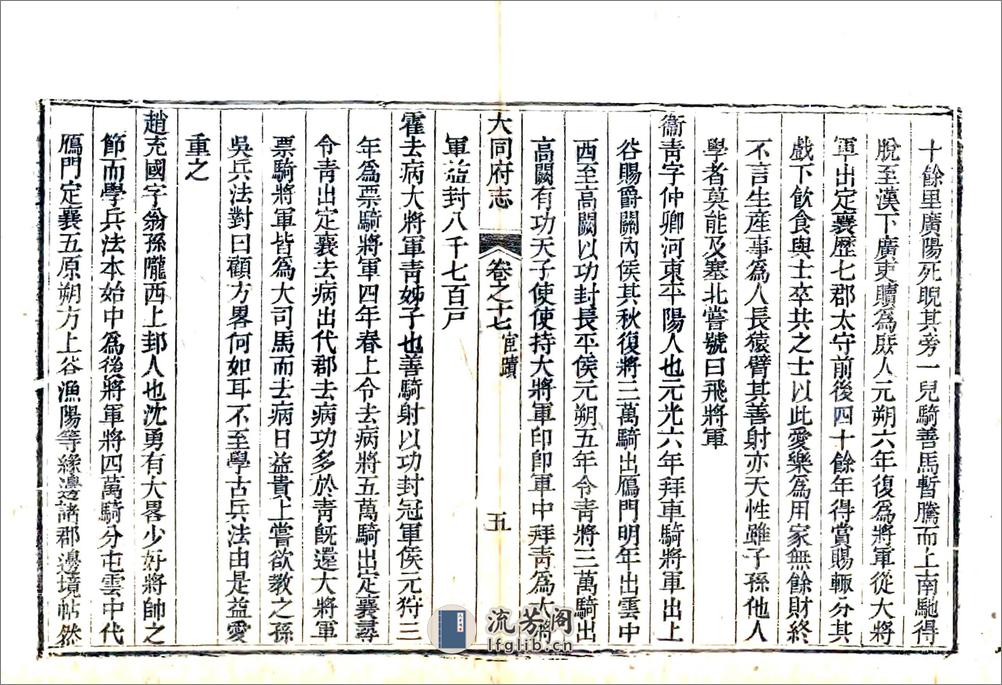 十餘里廣陽死睨其旁一兒騎善馬暫騰而上南馳得
脫至漢下廣吏贖為庶人元朔六年復為將軍從大將
軍出定襄歷七郡太守前後四十餘年得賞賜輒分其
戲下飲食與士卒共之士以此愛樂為用家無餘財終
不言生產事為人長猿臂其善射亦天性雖子孫他人
學者莫能及塞北嘗號曰飛將軍
衞青字仲卿河東平陽人也元光六年拜車騎將軍出上
谷賜爵關內侯其秋復將三萬騎出鴈門明年出雲中
西至高闕以功封長平侯元朔五年令青將三萬騎出
高闕有功天子使使持大將軍印即軍中拜青為大將
大同府志
卷之十七
宦蹟
五
軍益封八千七百戶
霍去病大將軍青姊子也善騎射以功封冠軍侯元狩三
年為票騎將軍四年春上令去病將五萬騎出定襄尋
令青出定襄去病出代郡去病功多於青旣還大將軍
票騎將軍皆為大司馬而去病日益貴上嘗欲教之孫
吳兵法對曰顧方畧何如耳不至學古兵法由是益愛
重之
趙充國字翁孫隴西上邽人也沈勇有大畧少好將帥之
節而學兵法本始中為後將軍將四萬騎分屯雲中代
鴈門定襄五原朔方上谷漁陽等緣邊諸郡邊境帖然
流芳阁
lfglib.cn